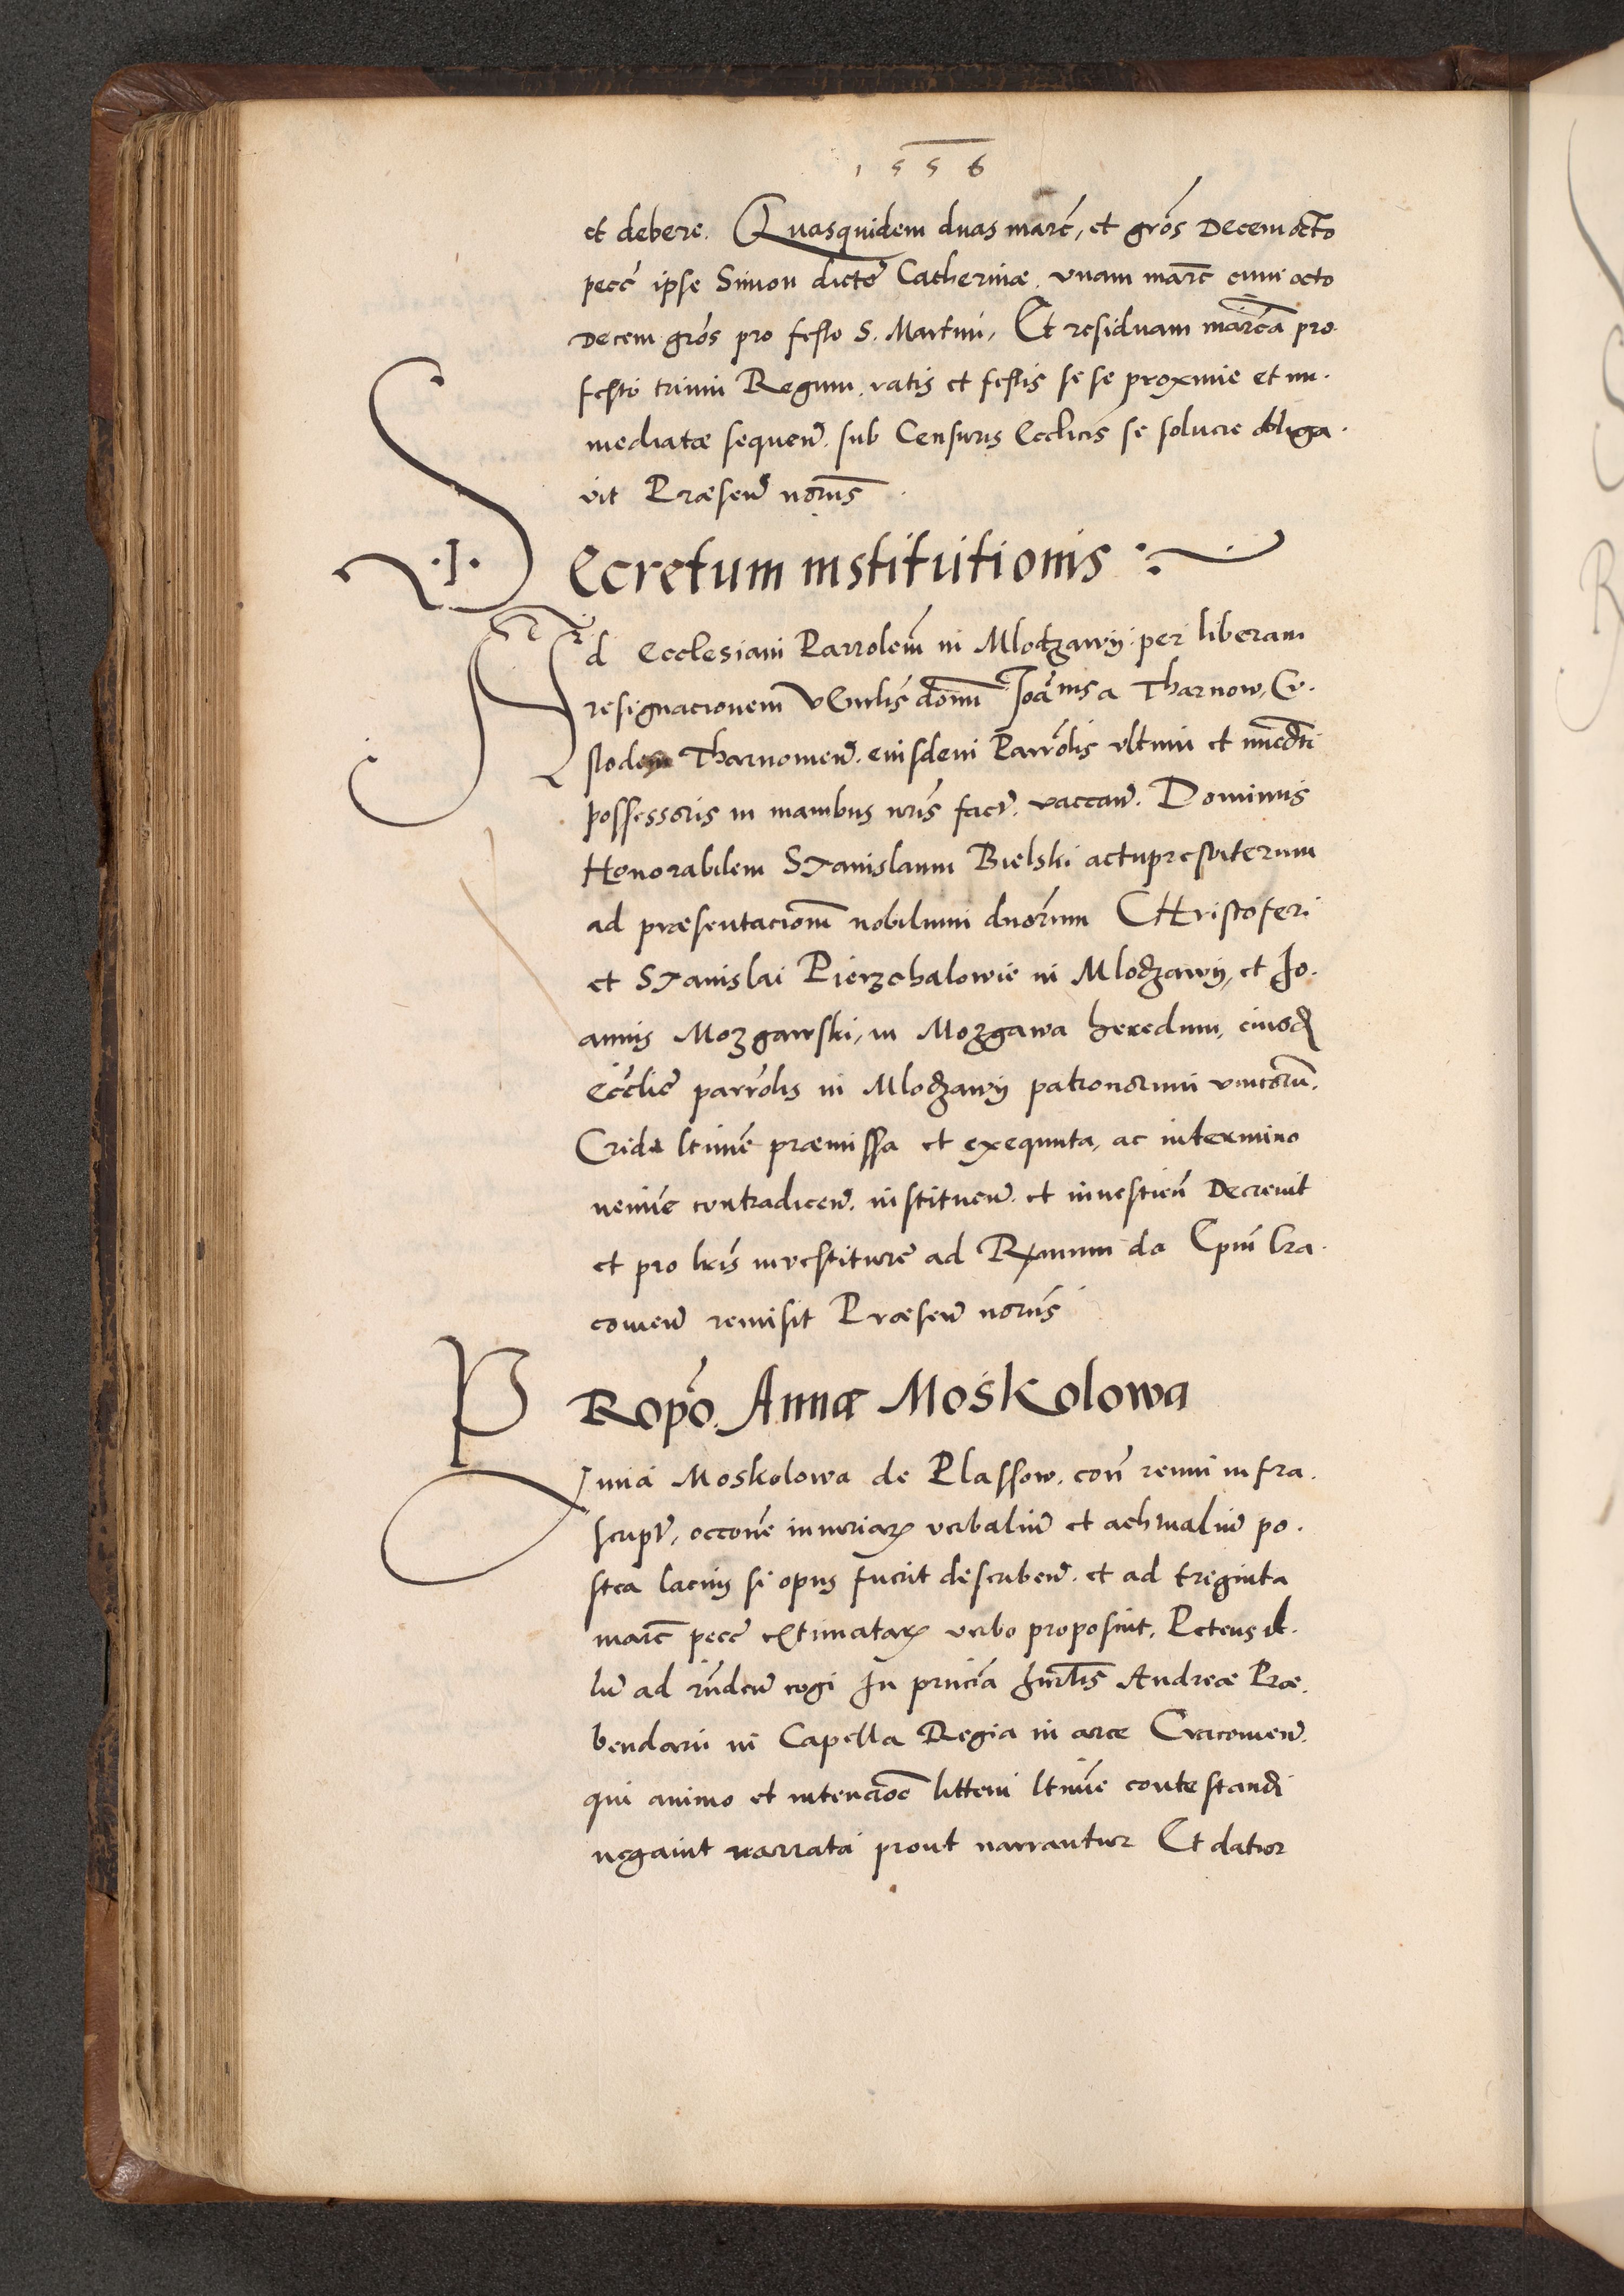 1556
et debere. Quasquidem duas marc̄, et grōs Decem octo
pecc̄ ipse Simon dictę Catherinæ. vnam marc̄ cum octo
Decem grōs pro festo S. Martini, Et residuam marcā pro
festo trium Regum. ratis et festis se se proxime et im.
mediatæ sequen̄. sub Censuris Eccl̄icis se soluere obliga.
vit Præsen̄ notīis
DEcretum institutionis
Ad Ecclesiam Parrolem̄ in Mlodzawy per liberam
resignacionem Vn̄blis domī Joān̄nis a Tharnow, Cu.
stodem Tharnowien̄. eiusdem Parrōlis vltimi et immed̄ti
possessoris in manibus nrīs fact̄. vaccan̄. Dominus
Honorabilem STanislaum Bielski actupresbiterum
ad præsentacionē nobilium duōrum CHristoferi
et STanislai Pierzchalowie in Mlodzawy, et Jo.
annis Mozgawski, in Mozgawa heredum, eiusd̄
Ecc̄lię parrōlis in Mlodzawy patronorum vnicorū.
Crida l̄time præmissa et exequuta, ac in termino
nemīe contradicen̄. instituen̄. et inuestien̄ Decreuit
et pro lr̄is inuestiturę ad Rx̄mum do Ep̄m Cra.
couien̄ remisit Præsen̄ notīis
PRopō. Annæ Moskolowa
Anna Moskolowa de Plassow. con̄ reum infra.
script̄, occōne iniuriarꝫ verbaliū et actualiū po.
stea lacius si opus fuerit describen̄. et ad treginta
marc̄ pecc̄ extimatarꝫ verbo proposuit. Petens il.
lū ad rn̄dendū cogi In pn̄cia hn̄blis Andreæ Præ.
bendarii in Capella Regia in arce Cracouien̄.
qui animo et intenciōe littem l̄time contestandi
negauit narrata prout narrantur Et datur